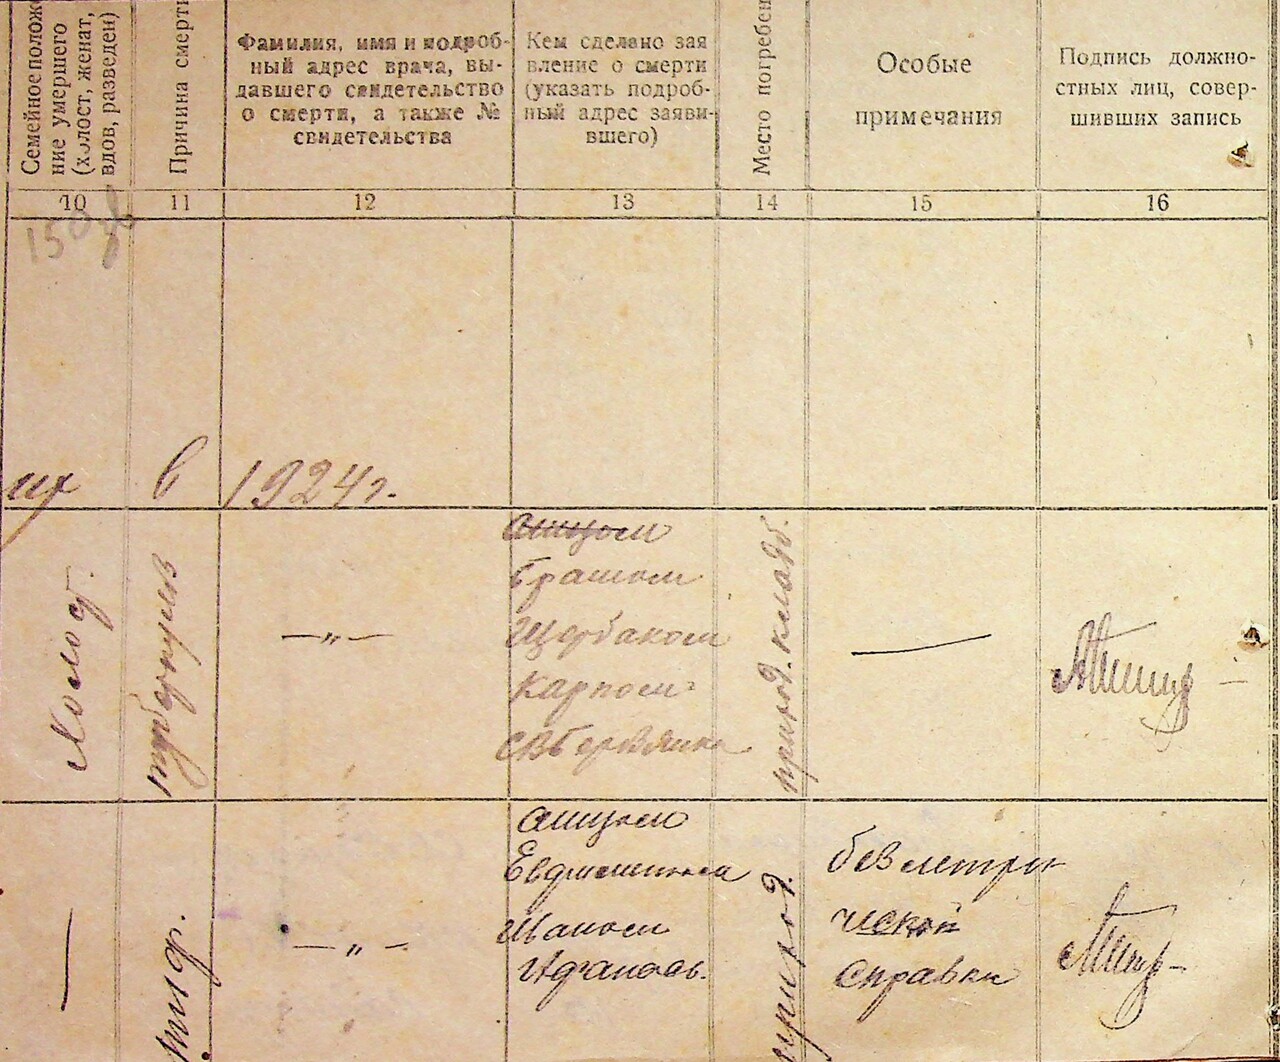 Семейное положе
ние умершего
(холост, женат,
вдов, разведен)
Причина смерти
Фамилия, имя и подроб-
ный адрес врача, вы-
давшего свидетельство
о смерти, а также №
свидетельства
Кем сделано зая
вление о смерти
(указать подроб-
ный адрес заяви-
вшего)
Место погребен
Особые
примечания
Подпись должно-
стных лиц, совер-
шивших запись
10 11 12 13 14 15 16
150
их в 1924 г.
Холост.
туберкулез
— „ —
отцом
братом
Щербаком
Карпом
приход. кладб.
—
—
тиф.
— „ —
отцом
Шапом
приход.
без метри
ческой
справки